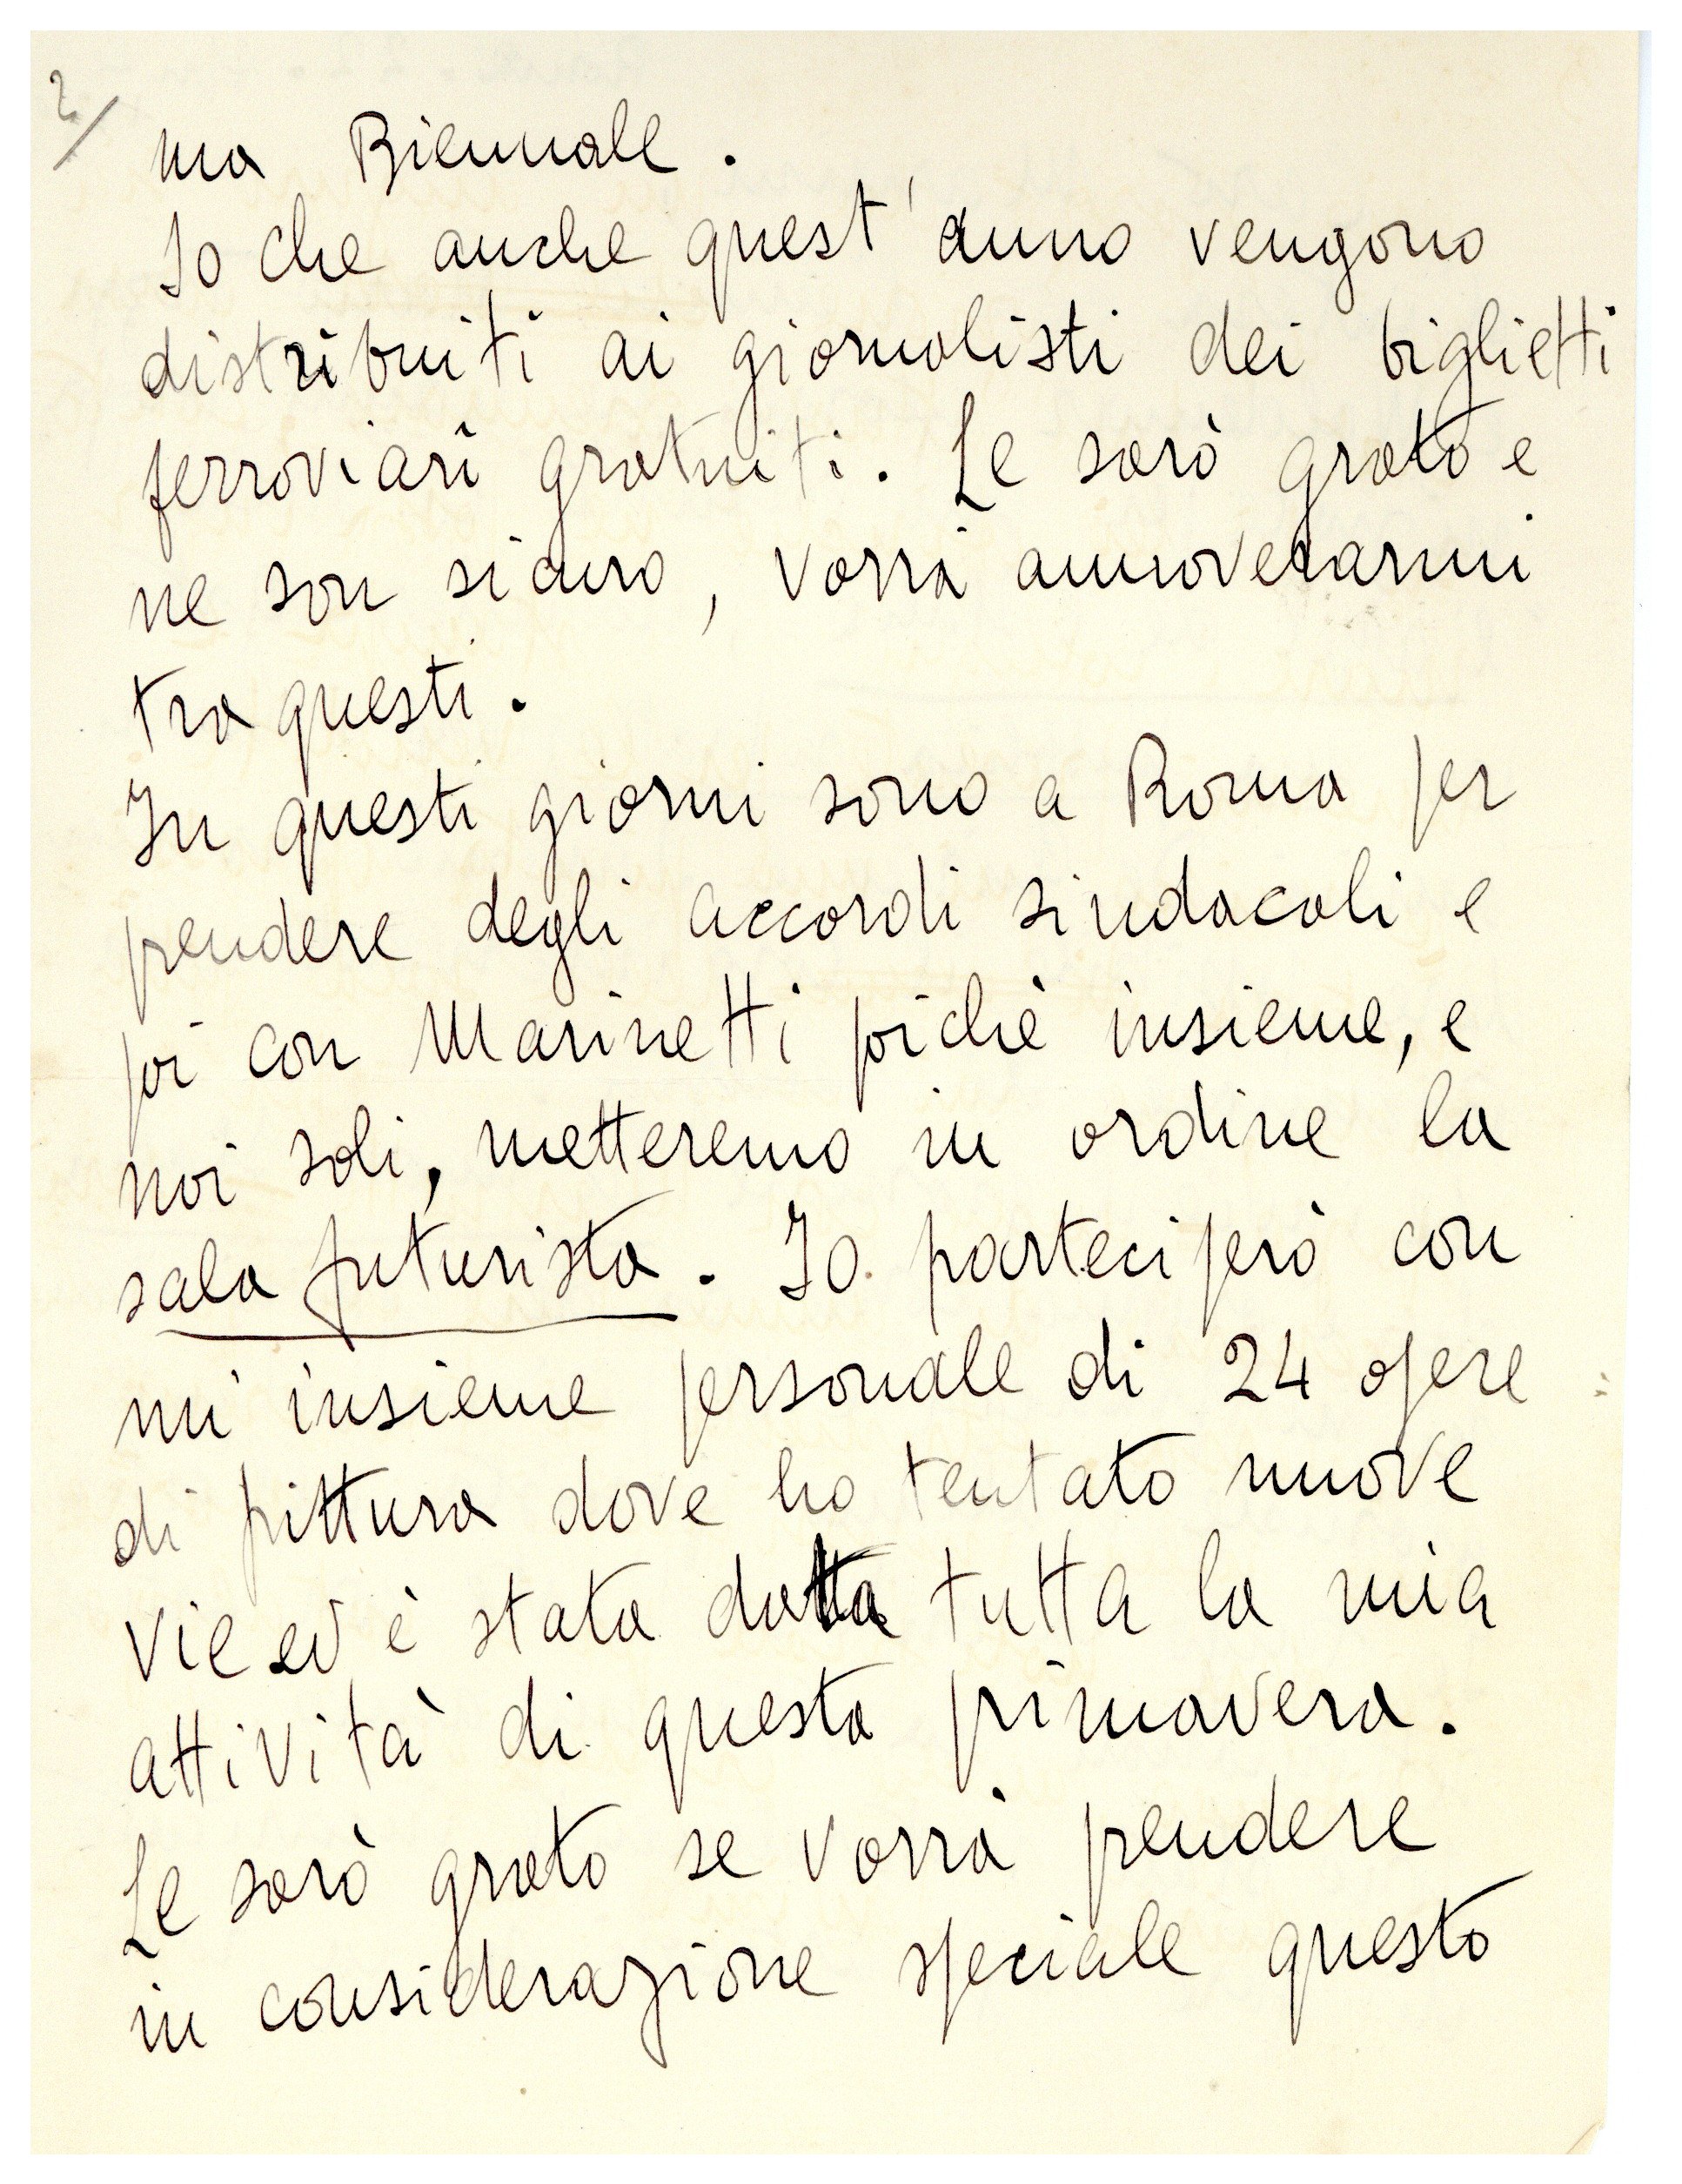 2/
ma Biennale.
So che anche quest'anno vengono
distribuiti ai giornalisti dei biglietti
ferroviari gratuiti. Le sarò grato e
ne son sicuro, vorrà annoverarmi
tra questi.
In questi giorni sono a Roma per
prendere degli accordi sindacali e
poi con Marinetti poichè insieme, e
noi soli, metteremo in ordine la
sala futurista. Io parteciperò con
un insieme personale di 24 opere
di pittura dove ho tentato nuove
vie ed è stata data tutta la mia
attività di questa primavera.
Le sarò grato se vorrà prendere
in considerazione speciale questo